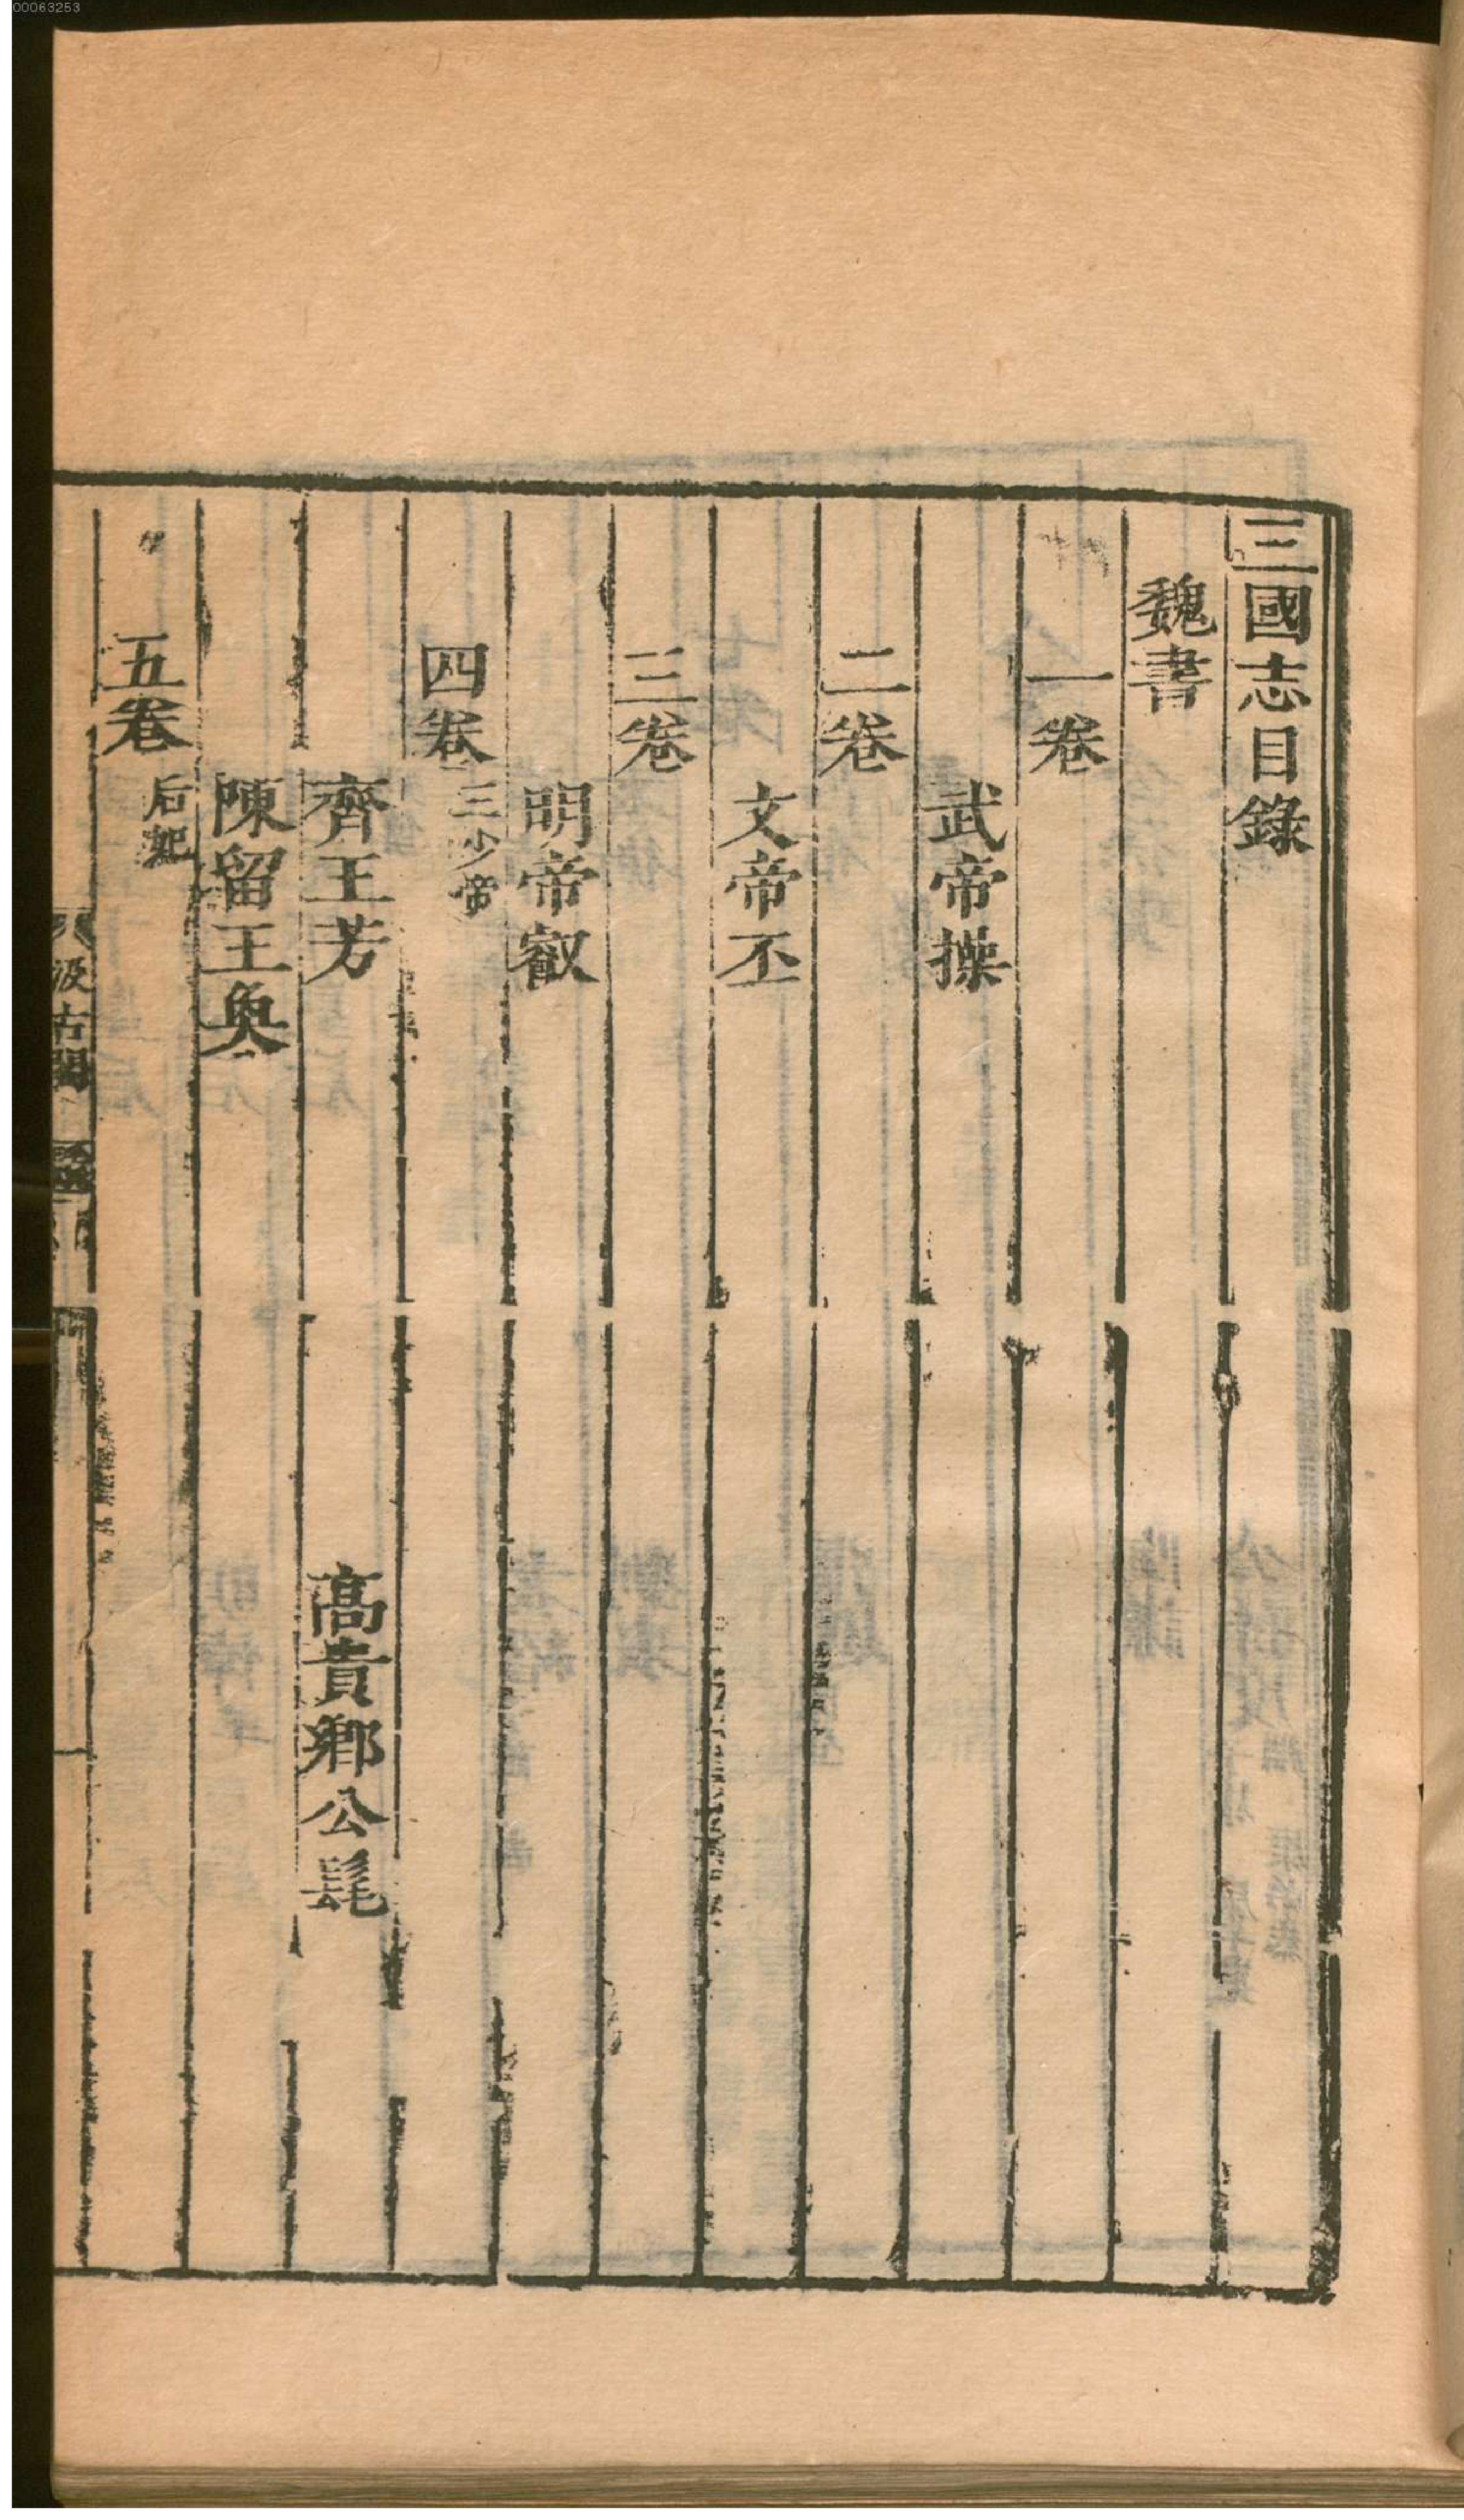 00063253
三國志目錄
魏書
一卷
武帝操
二卷
文帝丕
三卷
明帝叡
四卷 三少帝
齊王芳 高貴鄉公髦
陳留王奐
五卷 后妃
汲古閣